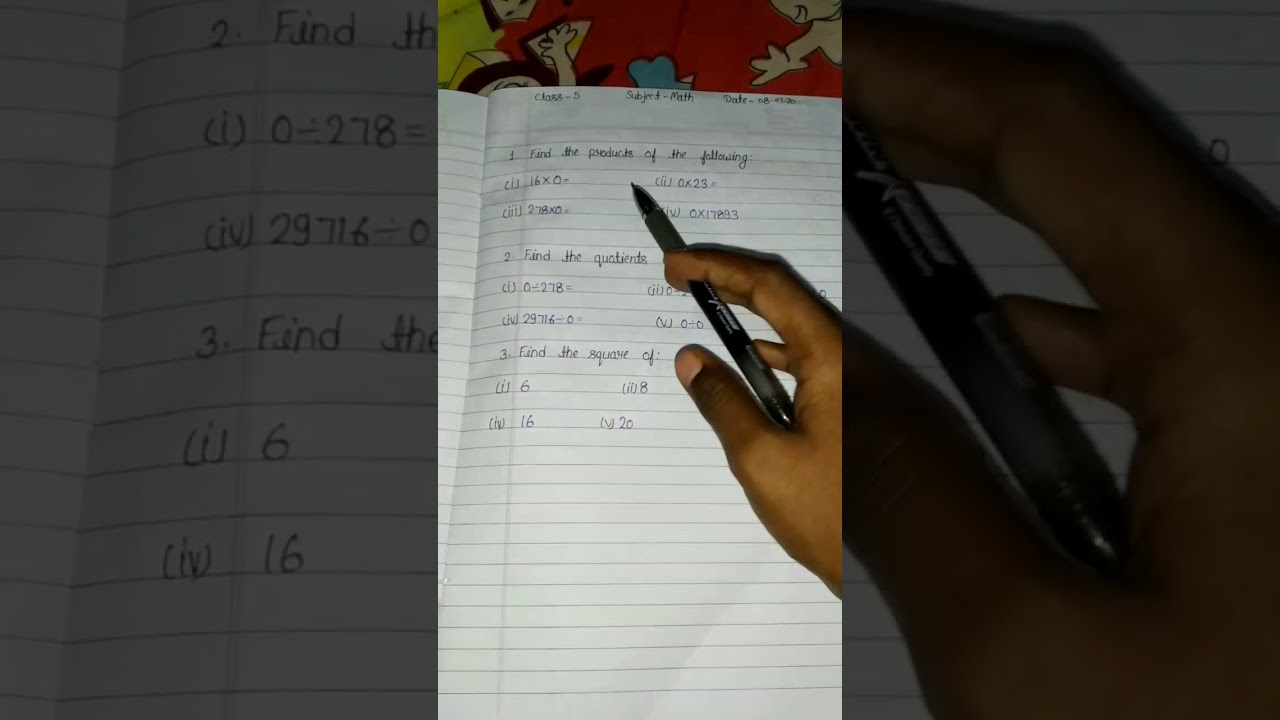 Class-5 Subject-Math Date-08-07-20
1 Find the products of the following:
(i) 16×0= (ii) 0×23=
(iii) 278×0= (iv) 0×17893
2. Find the quatients
(i) 0÷278= (ii) 0÷ 0
(iv) 29716÷0= (v) 0÷0
3. Find the square of:
(i) 6 (ii) 8
(iv) 16 (v) 20